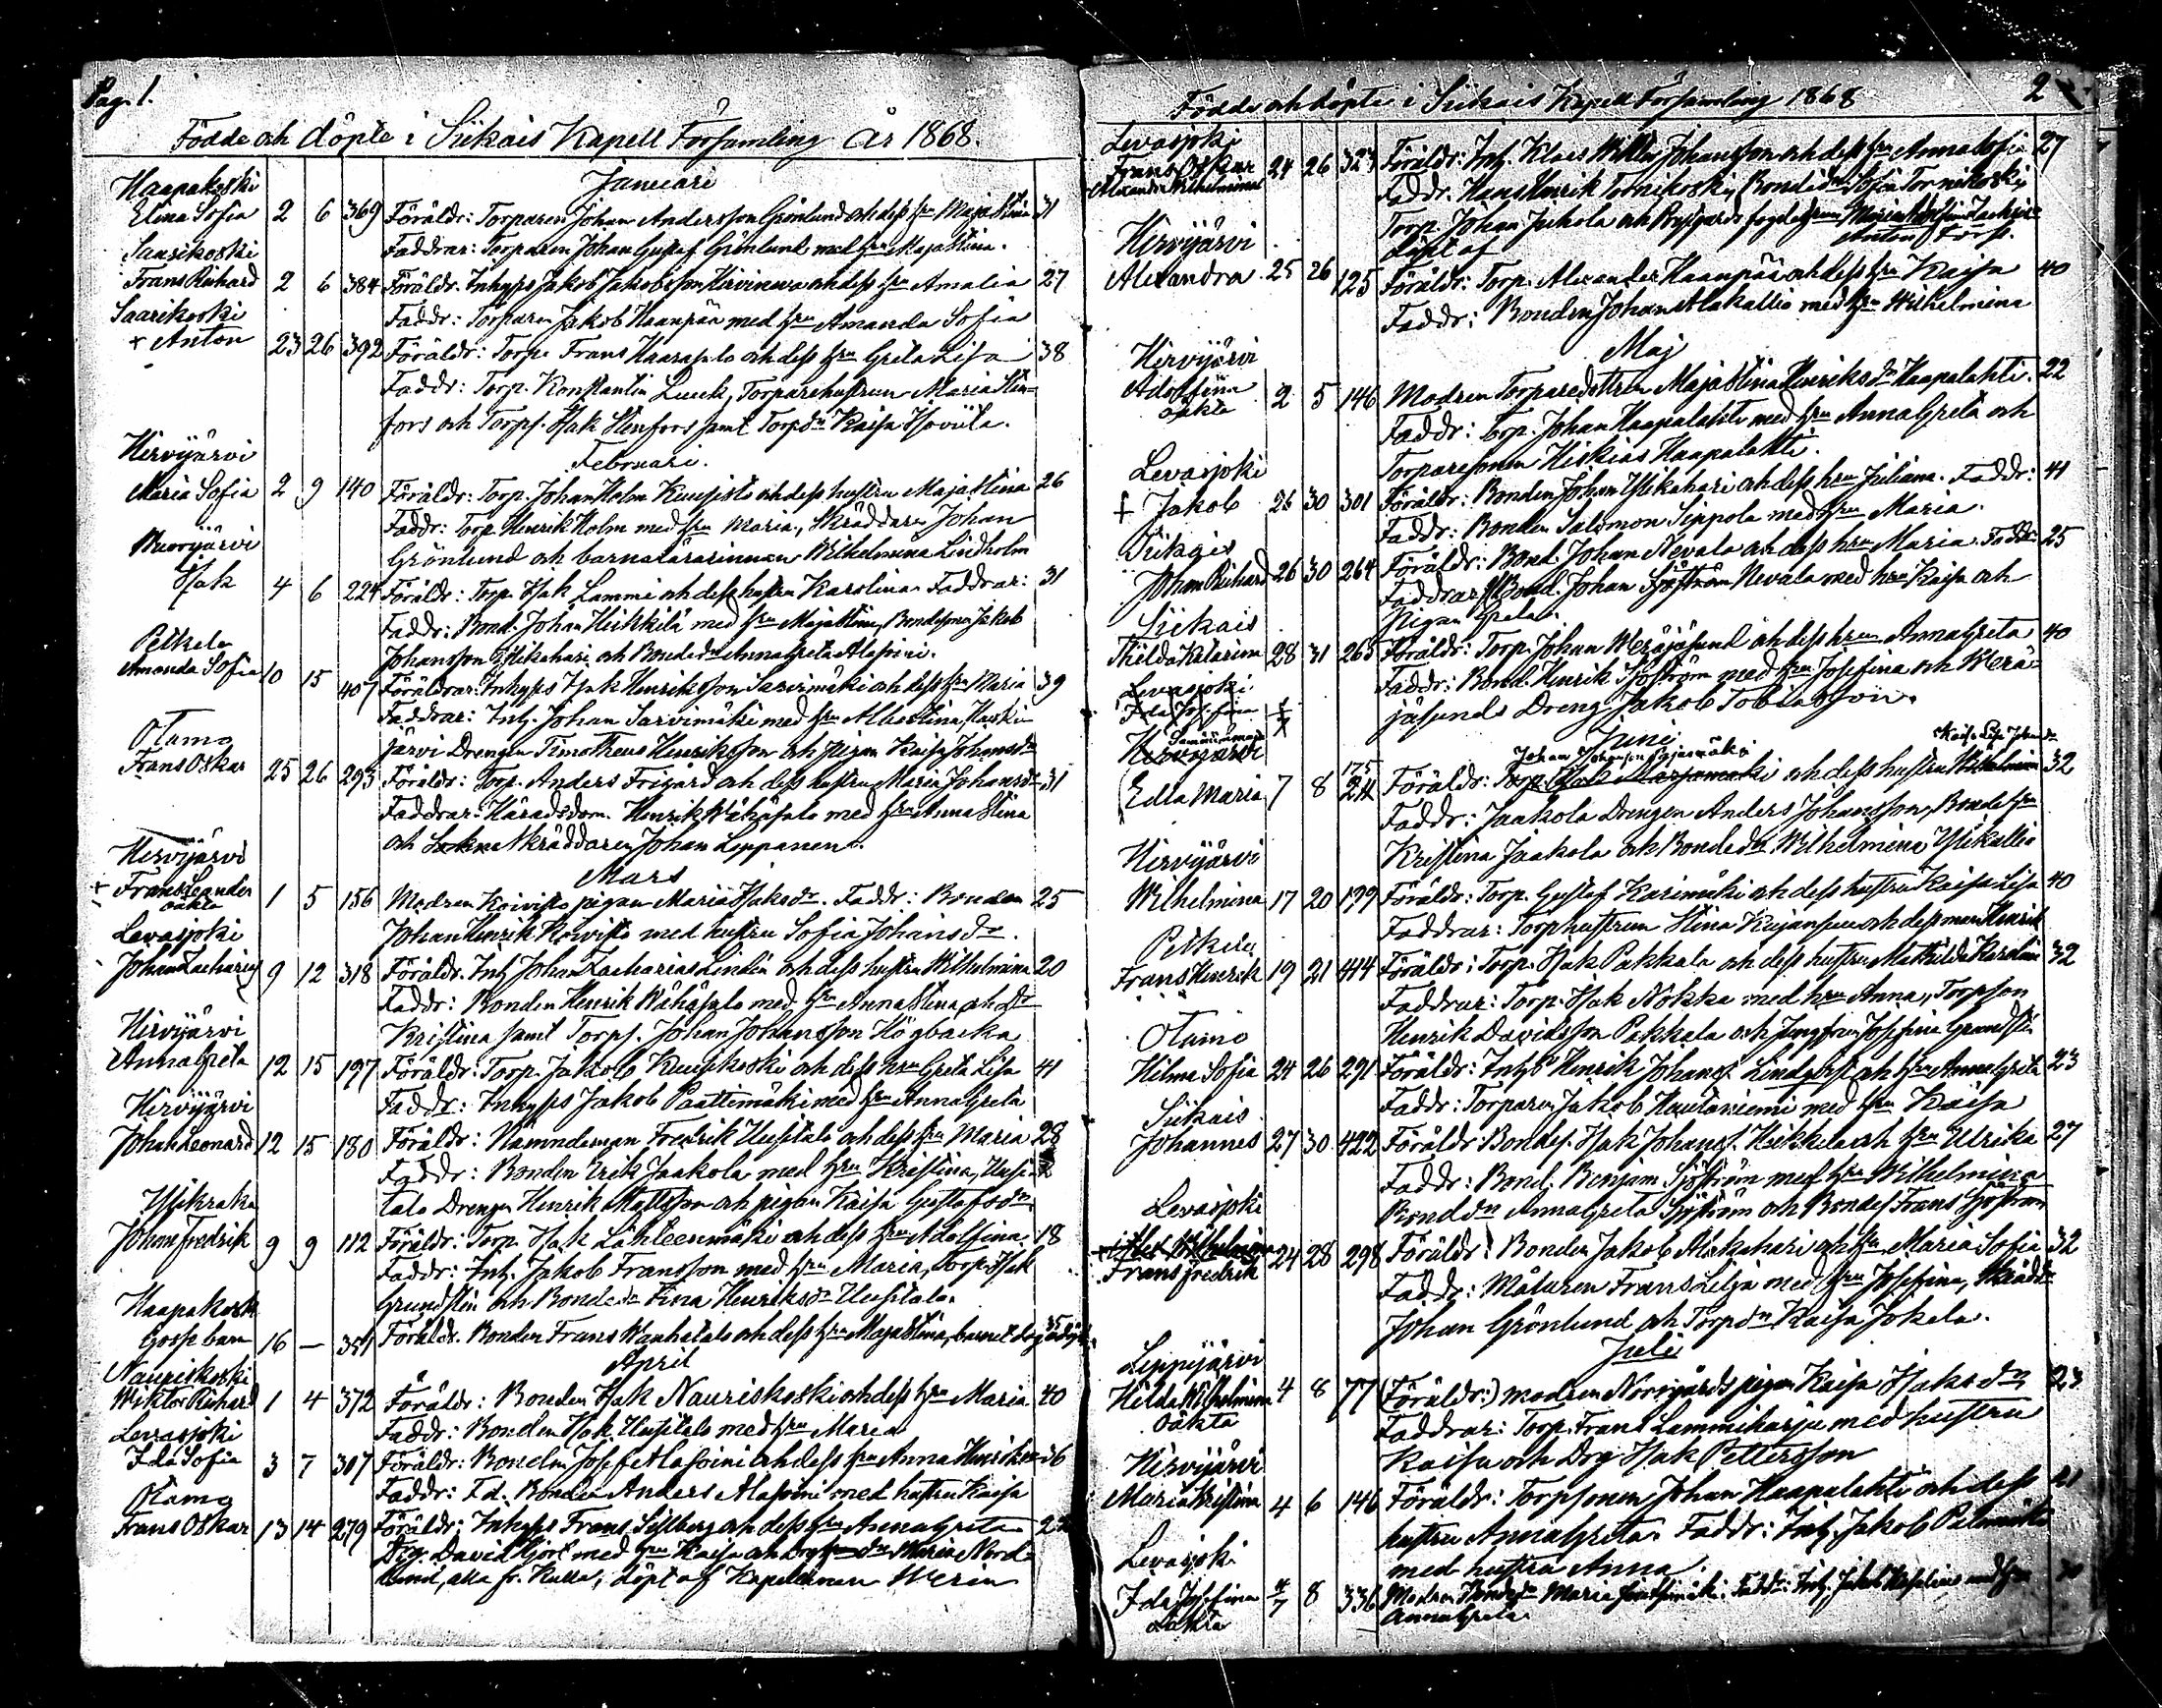 Pag. 1.
Födde och döpte i Siikais Kapell Församling år 1868.
Januari
Haapakoski
Elina Sofia 2 6 369 Föräldr: Torparen Johan Andersson Grönlund och dess hru Maja Stina 31
Faddrar: Torparen Johan Gustaf Grönlund med hru Maja Stina.
Saarikoski
Frans Richard 2 6 384 Föräldr. Inhyses Jakob Jakobsson Hirvineva och dess hru Amalia 27
Faddr: Torparen Jakob Haanpää med hru Amanda Sofia
Saarikoski
+ Anton 23 26 392 Föräldr: Torp. Frans Haarasalo och dess hru Greta Lisa 38
Faddr: Torp. Konstantin Luuk, Torparehustrun Maria Sten-
fors och Torps. Isak Stenfors samt Torpdr Kaisa
Februari.
Hirvijärvi
Maria Sofia 2 9 140 Föräldr: Torp. Johan Holm Kuusisto och dess hustru Maja Stina 26
Faddr: Torp. Henrik Holm med hru Maria, Skräddaren Johan
Grönlund och barnalärarinnan Wilhelmina Lindholm
Isak 4 6 224 Föräldr: Torp. Isak Lammi och dess hustru Karolina. Faddrar: 31
Faddr: Bond. Johan Heikkilä med hru Maja Stina, Bondesonen Jakob
Johansson Ylikahari och Bondedr Anna Greta Alasoini.
Petkele
Amanda Sofia 10 15 407 Föräldrar: Inhyses Isak Henriksson Sarvimäki och dess hru Maria 39
Faddrar: Inh. Johan Sarvimäki med hru Albertina
järvi Drengen Timotheus Henriksson och pigan Kaisa Johansdr
Otamo
Frans Oskar 25 26 293 Föräldr: Torp. Anders Frigård och dess hustru Maria Johansdr 31
Faddrar: Häradsdom. Henrik Wähäsalo med hru Anna Stina
och Skräddaren Johan Leppänen.
Mars
Hirvijärvi
+ Frans Leander
oäkta 1 5 156 Modren Koivisto pigan Maria Isaksdr. Faddr: Bonden 25
Johan Henrik Koivisto med hustru Sofia Johansdr.
Levasjoki
Johan Zacharias 9 12 318 Föräldr. Inh Johan Zacharias Lindén och dess hustru Wilhelmina 20
Faddr: Bonden Henrik Wähäsalo med hru Anna Stina och dr
Kristina samt Torps. Johan Johansson Högbacka
Hirvijärvi
Anna Greta 12 15 197 Föräldr: Torp. Jakob Kuusikoski och dess hru Greta Lisa 41
Faddr: Inhyses Jakob Paattimäki med hru Anna Greta
Hirvijärvi
Johan Leonard 12 15 180 Föräldr: Nämndeman Fredrik Uusitalo och dess hru Maria 28
Faddr: Bonden Erik Jaakola med hru Kristina, Uusi-
talo Drengen Henrik Mattsson och pigan Kaisa Gustafsdr
Johan Fredrik 9 9 112 Föräldr: Torp. Isak Lähteenmäki och dess hru Adolfina. 18
Faddr: Inh. Jakob Fransson med hru Maria, Torp. Isak
Grundstén och Bondedr Fina Henriksdr Uusitalo.
Haapakoski
Gosse barn 16 — 351 Föräldr. Bonden Frans Wanhatalo och dess hru Maja Stina, barnet 35
April
Nauriskoski
Wiktor Richard 1 4 372 Föräldr: Bonden Isak Nauriskoski och dess hru Maria 40
Faddr: Bonden Isak Uusitalo med hru Maria
Levasjoki
Ida Sofia 3 7 307 Föräldr: Bonden Josef Alasoini och dess hru Anna Henrika 36
Faddr: F.d. Bonden Anders Alasoini med hustru Kaisa
Otamo
Frans Oskar 13 14 279 Föräldr: Inhyses Frans Sillberg och dess hru Anna Greta
Drg. David Hjort med hru Kaisa och Maria Nord-
lund, alla fr. Kulla; döpt af Kapellanen Werin
Födde och döpte i Siikais Kapell Församling 1868 2
Levasjoki
Frans Oskar 24 26 323 Föräldr: Inh. Klaes Wilhelm Johansson och dess hru Anna Sofia 27
Alexander Wilhelmina
Faddr. Hans Henrik Tornikoski, Bondedr Sofia Tornikoski
Torp. Johan Jaakola och
Anton
Döpt af
Hirvijärvi
Alexandra 25 26 125 Föräldr: Torp. Alexander Haanpää och dess hru Kaisa 40
Faddr: Bonden Johan Alakallio med hru Wilhelmina
Maj
Hirvijärvi
Adolfina
oäkta 2 5 146 Modren Torparedottren Maja Stina Henriksdr Haapalahti. 22
Faddr: Torp. Johan Haapalahti med hru Anna Greta och
Torparesonen Hiskias Haapalahti.
Levasjoki
+ Jakob 26 30 301 Föräldr: Bonden Johan Ylikahari och dess hru Juliana. Faddr: 41
Faddr: Bonden Salomon Sippola med hru Maria.
Siikais
Johan Richard 26 30 264 Föräldr: Bond. Johan Nevala och dess hru Maria. Faddr: 25
Faddrar: Bond. Johan Sjöström Nevala med hru Kaisa och
Pigan Greta.
Siikais
Hilda Katarina 28 31 265 Föräldr: Torp. Johan Weräjäsund och dess hru Anna Greta 40
Faddr: Bond. Henrik Sjöström med hru Josefina och Werä-
jäsunds Dreng Jakob Tobiasson.
Levasjoki
Ida Josefina
Juni
Sammi
Hirvijärvi
Johan Johansson
Kaisa Lisa Johansdr
175
Edla Maria 7 8 211 Föräldr: Torp. Isak och dess hustru Wilhelmina 32
Faddr: Jaakola Drengen Anders Johansson, Bondehru
Kristina Jaakola och Bondedr Wilhelmina Ylikallio
Hirvijärvi
Wilhelmina 17 20 199 Föräldr: Torp. Gustaf Karimäki och dess hustru Kaisa Lisa 40
Faddrar: Torphustrun Stina Kujansuu och dess man Henrik
Petkele
Frans Henrik 19 21 414 Föräldr: Torp. Isak Pakkala och dess hustru Mathilda Karolina 32
Faddrar: Torp. Isak Nokka med hru Anna, Torpson
Henrik Davidsson Pakkala och Jungfrun Josefina Grundstén
Otamo
Hilma Sofia 24 26 291 Föräldr: Inhs Henrik Johanss. Lindqvist och hru Anna Greta 23
Faddr: Torparen Jakob Hautaniemi med hru Kaisa
Siikais
Johannes 27 30 422 Föräldr: Bondes. Isak Johanss. Heikkilä och hru Ulrika 27
Faddr: Bond. Benjam. Sjöström med hru Wilhelmina
Bonddr Anna Greta Sjöström och Bondes Frans Sjöström
Levasjoki
Frans Fredrik 24 28 298 Föräldr: Bonden Jakob Alakahari och hru Maria Sofia 32
Faddr: Målaren Frans Lilja med hru Josefina, Skrädd.
Johan Grönlund och Torpdr Kaisa Jokela.
Juli
Leppijärvi
Hilda Wilhelmina
oäkta 4 8 77 (Föräldr:) modren Norrgårds pigan Kaisa Isaksdr 23
Faddrar: Torp. Frans Lammiharju med hustru
Kaisa och Drg Isak Pettersson
Hirvijärvi
Maria Kristina 4 6 146 Föräldr: Torpsonen Johan Haapalahti och dess 21
hustru Anna Greta. Faddr: Inh. Jakob Palomäki
med hustru Anna.
Levasjoki
Ida Josefina
oäkta 4/7 8 336 Modren Bondedr Maria Faddr: Inh. Jakob med hru
Anna Greta.